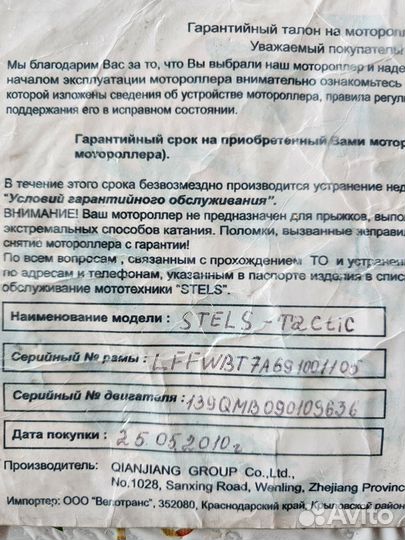 Гарантийный талон на моторолл
Уважаемый покупатель
Мы благодарим Вас за то, что Вы выбрали наш мотороллер и наде
началом эксплуатации мотороллера внимательно ознакомьтесь
которой изложены сведения об устройстве мотороллера, правила регул
поддержания его в исправном состоянии.
Гарантийный срок на приобретенный Вами мотор
мотороллера).
В течение этого срока безвозмездно производится устранение нед
"Условий гарантийного обслуживания".
ВНИМАНИЕ! Ваш мотороллер не предназначен для прыжков, выпо
экстремальных способов катания. Поломки, вызванные неправи
снятие мотороллера с гарантии!
По всем вопросам, связанным с прохождением ТО и устранени
по адресам и телефонам, указанным в паспорте изделия в спис
обслуживание мототехники "STELS".
Наименование модели: STELS - Tactic
Серийный № рамы: LFFWBT7A691001105
Серийный № двигателя: 139QMB090109636
Дата покупки: 25.05.2010г
Производитель: QIANJIANG GROUP Co.,Ltd.,
No.1028, Sanxing Road, Wenling, Zhejiang Provinc
Импортер: ООО "Велотранс", 352080, Краснодарский край, Крыловской район
Avito